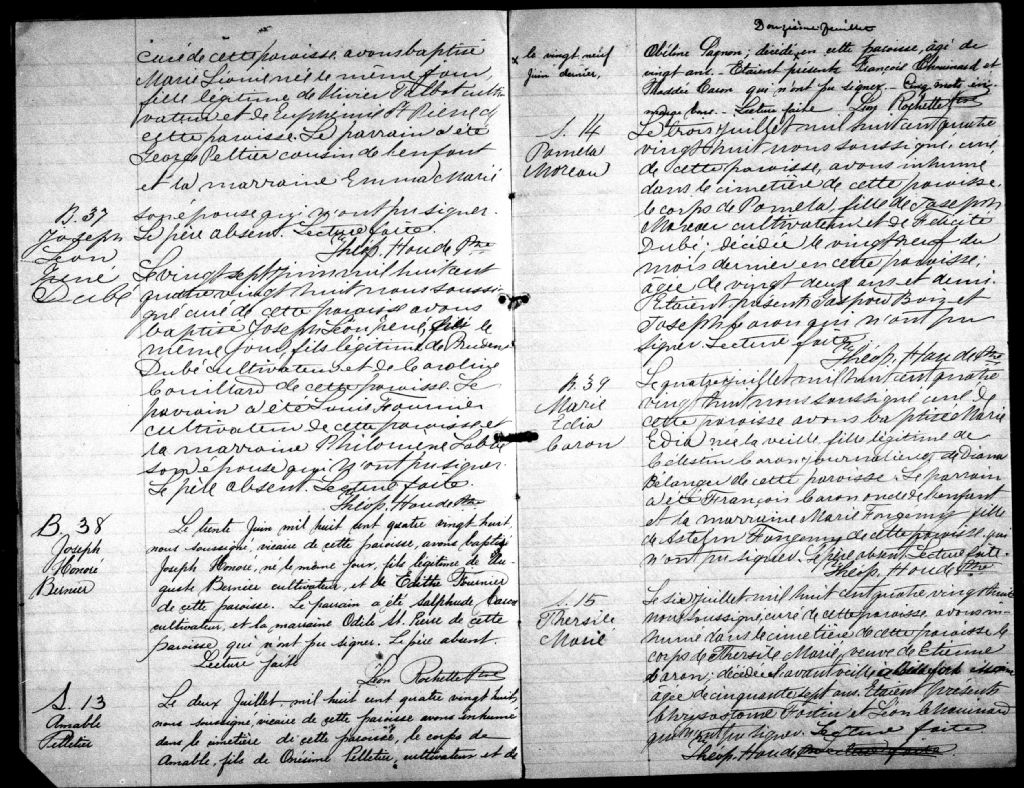 curé de cette paroisse avons baptisé
Marie née le même jour,
fille légitime de Olivier Talbot culti-
vateur et de St Pierre de
cette paroisse. Le parrain a été
George Peltier cousin de l'enfant
et la marraine Emma Marie
son épouse qui n'ont pu signer.
Le père absent. Lecture faite.
Théop. Houde Ptre
B. 37
Joseph
Léon
René
Dubé
Le vingt sept juin mil huit cent
quatre vingt huit nous soussi-
gné curé de cette paroisse avons
baptisé Joseph Léon René, né le
même jour, fils légitime de
Dubé cultivateur et de Caroline
Couillard de cette paroisse. Le
parrain a été Louis Fournier
cultivateur de cette paroisse et
la marraine Philomène Labbé
son épouse qui n'ont pu signer.
Le père absent. Lecture faite.
Théop. Houde Ptre
B. 38
Joseph
Honoré
Bernier
Le trente Juin mil huit cent quatre vingt huit,
nous soussigné, vicaire de cette paroisse, avons baptisé
Joseph Honoré, né le même jour, fils légitime de Au-
guste Bernier cultivateur, et de Edithe Fournier
de cette paroisse. Le parrain a été Caron
cultivateur, et la marraine Odèle St. Pierre de cette
paroisse, qui n'ont pu signer. Le père absent.
Lecture faite
Léon Rochette Ptre
S. 13
Amable
Pelletier
Le deux Juillet, mil huit cent quatre vingt huit,
nous soussigné, vicaire de cette paroisse avons inhumé
dans le cimetière de cette paroisse, le corps de
Amable, fils de Onésime Pelletier, cultivateur et de
Douzième feuillet
x le vingt neuf
Juin dernier,
Obéline Gagnon; décédé, x en cette paroisse, âgé de
vingt ans. Etaient présents François Chouinard et
Thaddée Caron qui n'ont pu signer. Cinq mots en
marge bons. Lecture faite Léon Rochette Ptre
S. 14
Pamela
Moreau
Le trois juillet mil huit cent quatre
vingt huit nous soussigné, curé
de cette paroisse, avons inhumé
dans le cimetière de cette paroisse,
le corps de Pamela, fille de Joseph
Moreau cultivateur et de Félicité
Dubé; décédée le vingt neuf du
mois dernier en cette paroisse;
agée de vingt deux ans et demi.
Etaient présents et
Joseph Caron qui n'ont pu
signer. Lecture faite.
Théop. Houde Ptre
B. 39
Marie
Edia
Caron
Le quatre juillet mil huit cent quatre
vingt huit nous soussigné curé de
cette paroisse avons baptisé Marie
Edia née la veille, fille légitime de
Célestin Caron journalier et de Diana
Bélanger de cette paroisse. Le parrain
a été François Caron oncle de l'enfant
et la marraine Marie fille
de de cette paroisse, qui
n'ont pu signer. Le père absent. Lecture faite.
Théop. Houde Ptre
S. 15
Thersile
Marie
Le six juillet mil huit cent quatre vingt huit
nous soussigné, curé de cette paroisse avons in-
humé dans le cimetière de cette paroisse le
corps de Thersile Marie, veuve de Etienne
Caron; décédée l'avant veille
agée de cinquante sept ans. Etaient présents
Chrysostome Fortin et Léon Chouinard
qui n'ont pu signer. Lecture faite
Théop. Houde